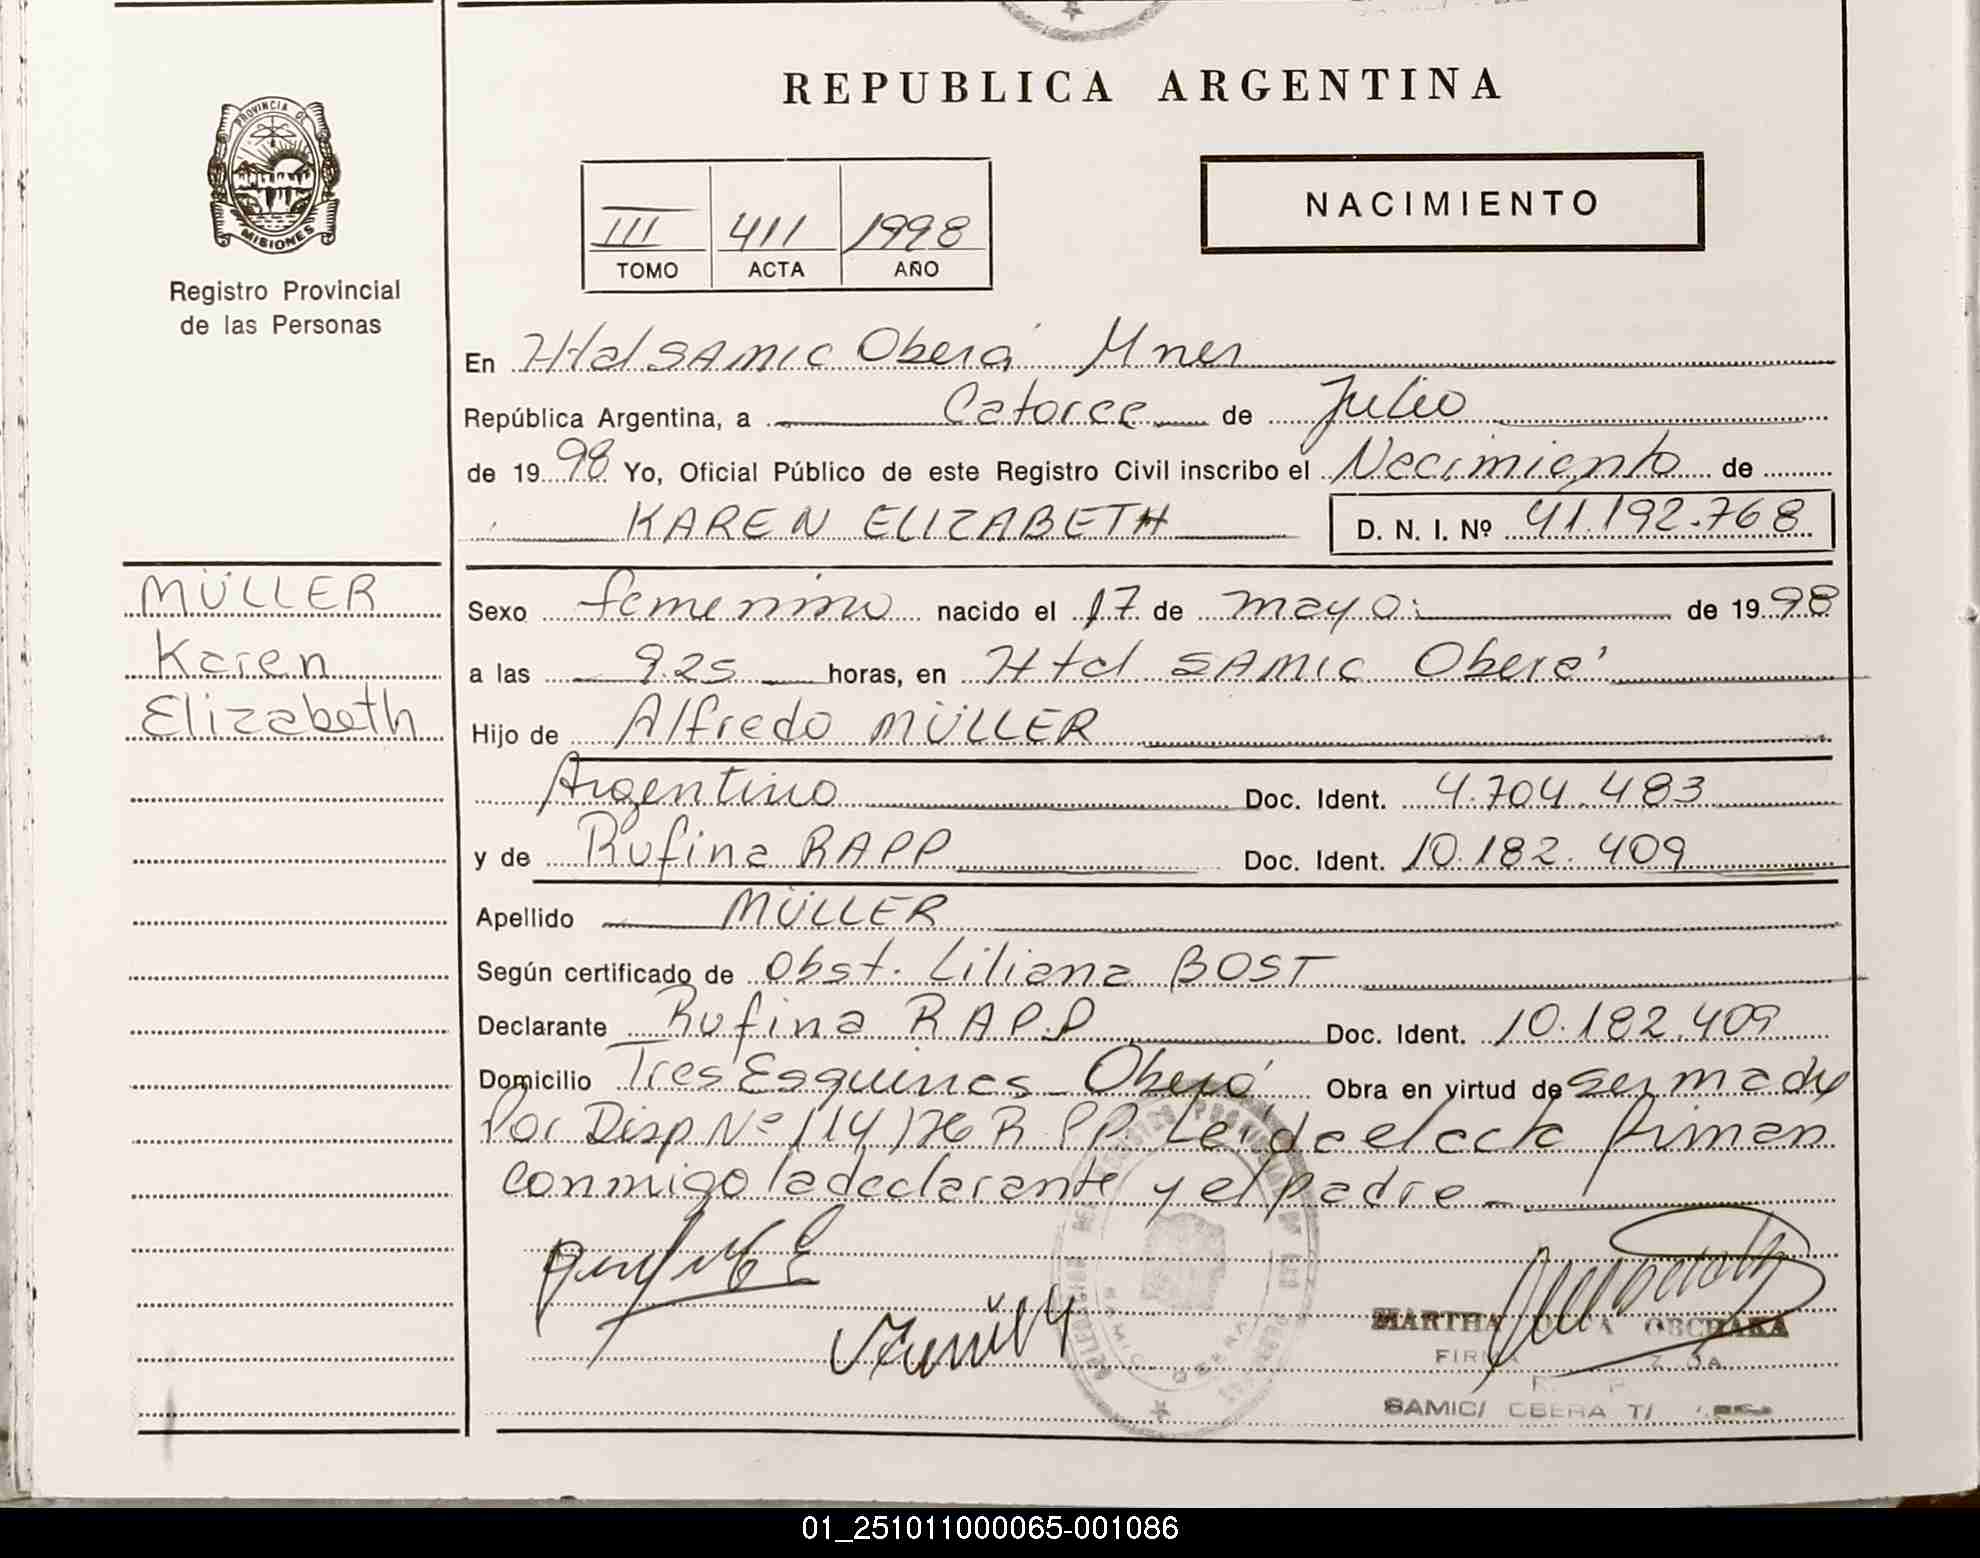 REPUBLICA ARGENTINA
PROVINCIA DE
MISIONES
Registro Provincial
de las Personas
III 411 1998
TOMO ACTA AÑO
NACIMIENTO
En Htal SAMIC Oberá Mnes
República Argentina, a Catorce de Julio
de 1998 Yo, Oficial Público de este Registro Civil inscribo el Nacimiento de
KAREN ELIZABETH D. N. I. Nº 41.192.768
MÜLLER
Karen
Elizabeth
Sexo femenino nacido el 17 de mayo de 1998
a las 9.25 horas, en Htal SAMIC Oberá
Hijo de Alfredo MÜLLER
Argentino Doc. Ident. 4.704.483
y de Rufina RAPP Doc. Ident. 10.182.409
Apellido MÜLLER
Según certificado de Obst. Liliana BOST
Declarante Rufina RAPP Doc. Ident. 10.182.409
Domicilio Tres Esquinas Oberá Obra en virtud de ser madre
Por Disp Nº 114/76 R.P.P. Leída el acta firman
conmigo la declarante y el padre
MARTHA OBCHAKA
SAMIC/ OBERA
01_251011000065-001086